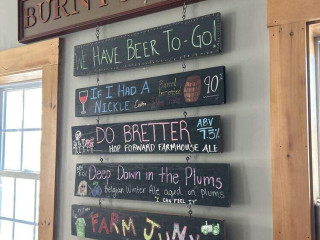 BURNT
WE HAVE BEER TO-GO!
IF I HAD A
NICKLE
90²
DO BRETTER
ABV
7.5%
HOP FORWARD FARMHOUSE ALE
DEEP DOWN IN THE PLUMS
Belgian Winter Ale aged on plums
"I CAN FEEL IT"
FARM